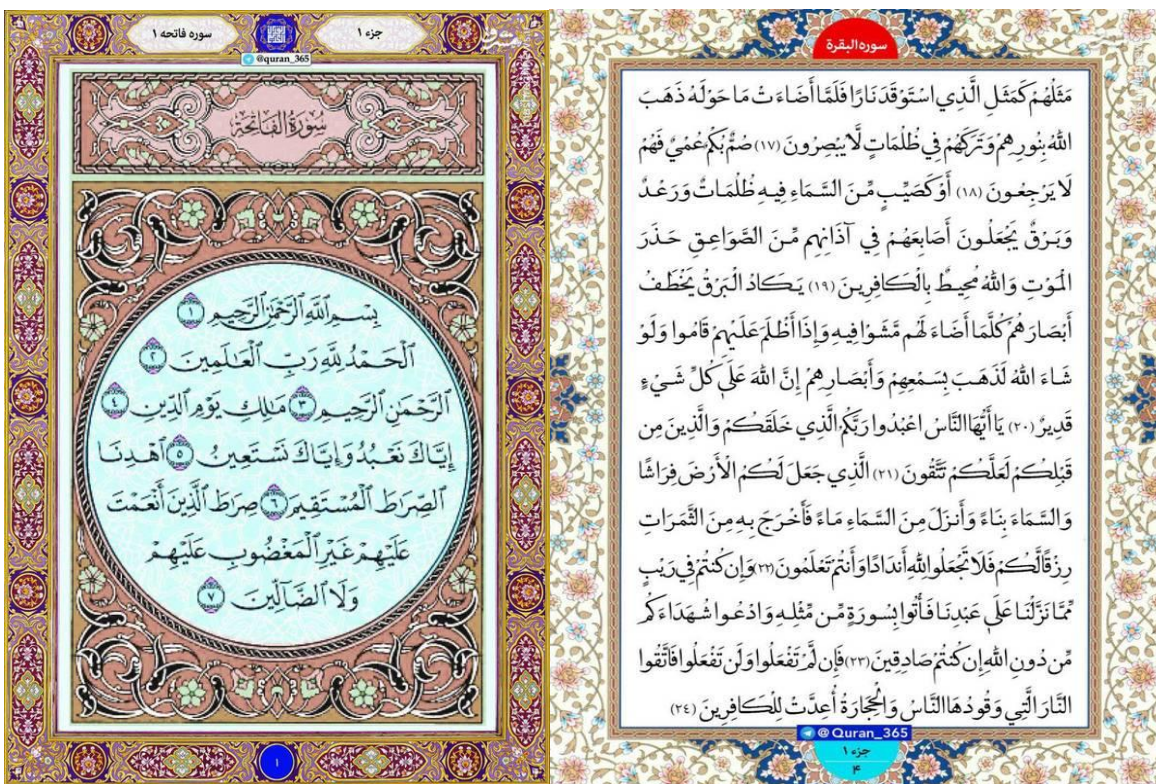 جزء ۱
سوره فاتحه ۱
@quran_365
سُورَةُ الْفَاتِحَةِ
بِسْمِ ٱللَّهِ ٱلرَّحْمَٰنِ ٱلرَّحِيمِ ١
ٱلْحَمْدُ لِلَّهِ رَبِّ ٱلْعَٰلَمِينَ ٢
ٱلرَّحْمَٰنِ ٱلرَّحِيمِ ٣ مَٰلِكِ يَوْمِ ٱلدِّينِ ٤
إِيَّاكَ نَعْبُدُ وَإِيَّاكَ نَسْتَعِينُ ٥ ٱهْدِنَا
ٱلصِّرَٰطَ ٱلْمُسْتَقِيمَ ٦ صِرَٰطَ ٱلَّذِينَ أَنْعَمْتَ
عَلَيْهِمْ غَيْرِ ٱلْمَغْضُوبِ عَلَيْهِمْ
وَلَا ٱلضَّآلِّينَ ٧
۱
سوره البقرة
مَثَلُهُمْ كَمَثَلِ الَّذِي اسْتَوْقَدَ نَارًا فَلَمَّا أَضَاءَتْ مَا حَوْلَهُ ذَهَبَ
اللَّهُ بِنُورِهِمْ وَتَرَكَهُمْ فِي ظُلُمَاتٍ لَّا يُبْصِرُونَ (١٧) صُمٌّ بُكْمٌ عُمْيٌ فَهُمْ
لَا يَرْجِعُونَ (١٨) أَوْ كَصَيِّبٍ مِّنَ السَّمَاءِ فِيهِ ظُلُمَاتٌ وَرَعْدٌ
وَبَرْقٌ يَجْعَلُونَ أَصَابِعَهُمْ فِي آذَانِهِم مِّنَ الصَّوَاعِقِ حَذَرَ
الْمَوْتِ وَاللَّهُ مُحِيطٌ بِالْكَافِرِينَ (١٩) يَكَادُ الْبَرْقُ يَخْطَفُ
أَبْصَارَهُمْ كُلَّمَا أَضَاءَ لَهُم مَّشَوْا فِيهِ وَإِذَا أَظْلَمَ عَلَيْهِمْ قَامُوا وَلَوْ
شَاءَ اللَّهُ لَذَهَبَ بِسَمْعِهِمْ وَأَبْصَارِهِمْ إِنَّ اللَّهَ عَلَىٰ كُلِّ شَيْءٍ
قَدِيرٌ (٢٠) يَا أَيُّهَا النَّاسُ اعْبُدُوا رَبَّكُمُ الَّذِي خَلَقَكُمْ وَالَّذِينَ مِن
قَبْلِكُمْ لَعَلَّكُمْ تَتَّقُونَ (٢١) الَّذِي جَعَلَ لَكُمُ الْأَرْضَ فِرَاشًا
وَالسَّمَاءَ بِنَاءً وَأَنزَلَ مِنَ السَّمَاءِ مَاءً فَأَخْرَجَ بِهِ مِنَ الثَّمَرَاتِ
رِزْقًا لَّكُمْ فَلَا تَجْعَلُوا لِلَّهِ أَندَادًا وَأَنتُمْ تَعْلَمُونَ (٢٢) وَإِن كُنتُمْ فِي رَيْبٍ
مِّمَّا نَزَّلْنَا عَلَىٰ عَبْدِنَا فَأْتُوا بِسُورَةٍ مِّن مِّثْلِهِ وَادْعُوا شُهَدَاءَكُم
مِّن دُونِ اللَّهِ إِن كُنتُمْ صَادِقِينَ (٢٣) فَإِن لَّمْ تَفْعَلُوا وَلَن تَفْعَلُوا فَاتَّقُوا
النَّارَ الَّتِي وَقُودُهَا النَّاسُ وَالْحِجَارَةُ أُعِدَّتْ لِلْكَافِرِينَ (٢٤)
@Quran_365
جزء ۱
۴